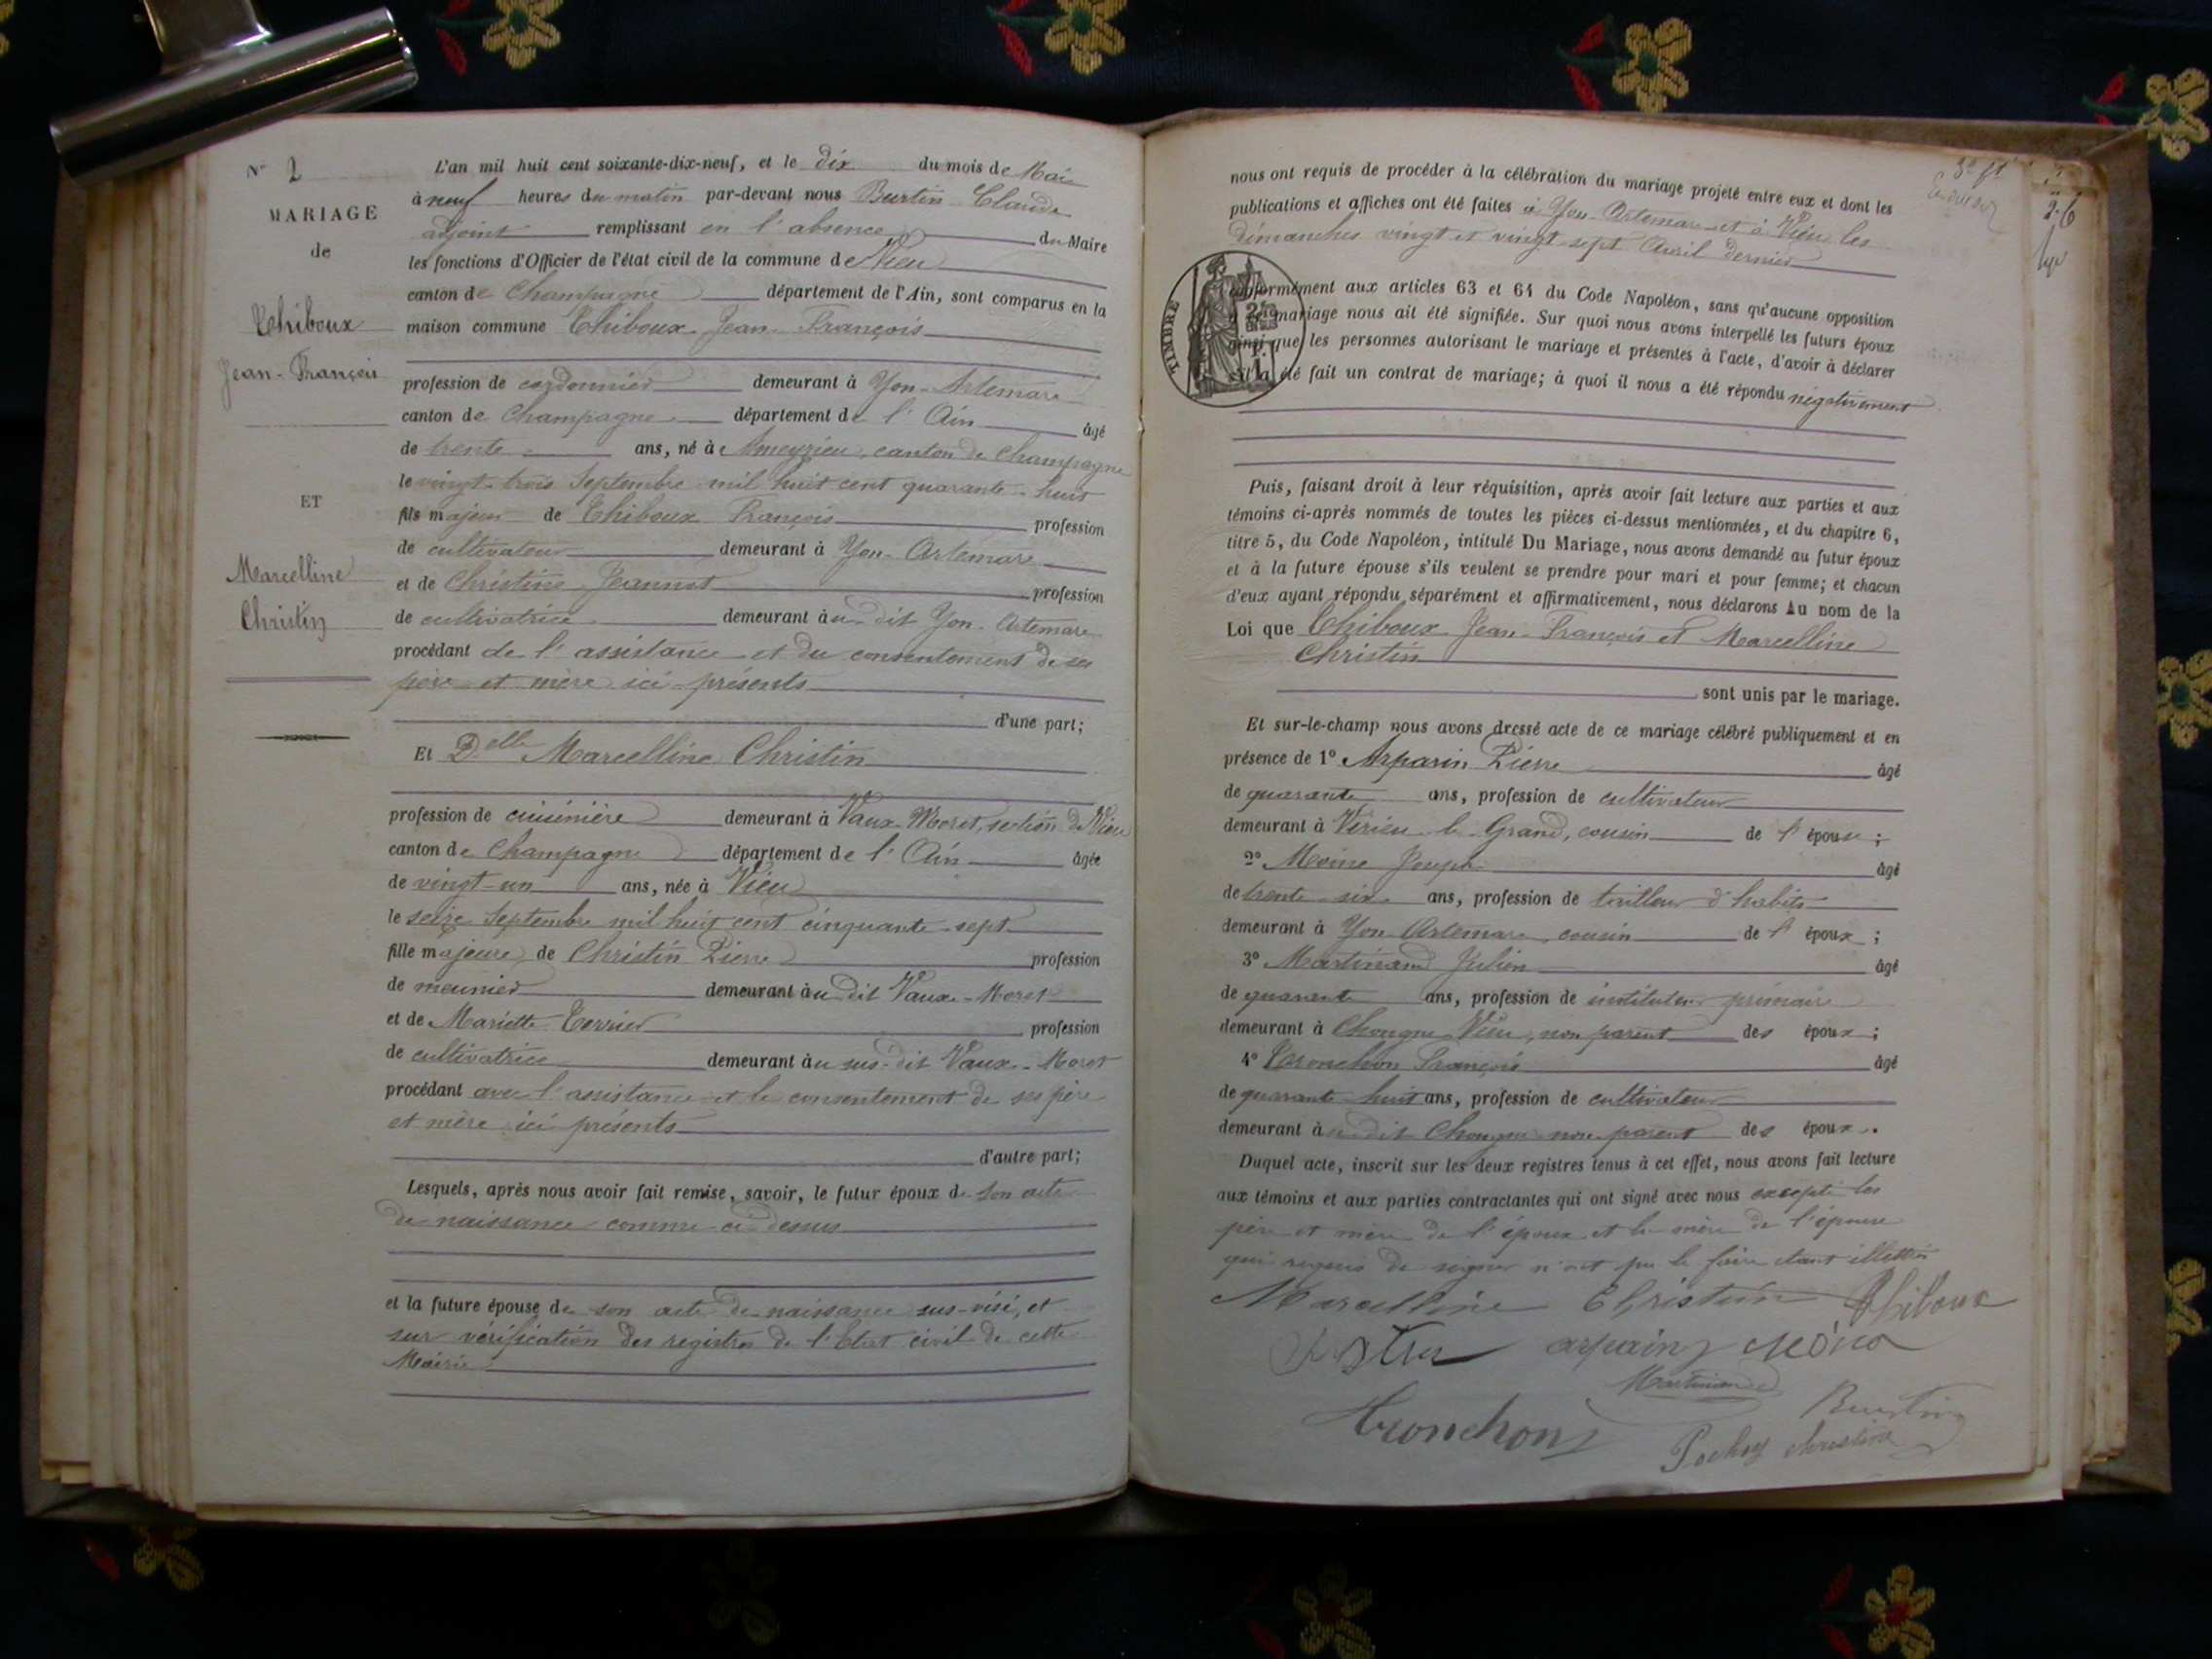 N° 2
MARIAGE
de
Thiboux
Jean-François
ET
Marcelline
Christin
L'an mil huit cent soixante-dix-neuf, et le dix du mois de Mai
à neuf heures du matin par-devant nous Burtin Claude
adjoint remplissant en l'absence du Maire
les fonctions d'Officier de l'état civil de la commune de Vieu
canton de Champagne département de l'Ain, sont comparus en la
maison commune Thiboux Jean-François
profession de cordonnier demeurant à Yon-Artemare
canton de Champagne département de l'Ain âgé
de trente ans, né à Ameyzieu, canton de Champagne
le vingt-trois Septembre mil huit cent quarante-huit
fils majeur de Thiboux François profession
de cultivateur demeurant à Yon-Artemare
et de Christine Jeannot profession
de cultivatrice demeurant au dit Yon-Artemare
procédant de l'assistance et du consentement de ses
père et mère ici présents
d'une part;
Et Delle Marcelline Christin
profession de cuisinière demeurant à Vaux-Moret, section de Vieu
canton de Champagne département de l'Ain âgée
de vingt-un ans, née à Vieu
le seize Septembre mil huit cent cinquante-sept
fille majeure de Christin Pierre profession
de meunier demeurant au dit Vaux-Moret
et de Mariette Terrier profession
de cultivatrice demeurant au sus-dit Vaux-Moret
procédant avec l'assistance et le consentement de ses père
et mère ici présents
d'autre part;
Lesquels, après nous avoir fait remise, savoir, le futur époux de son acte
de naissance comme ci-dessus
et la future épouse de son acte de naissance sus-visé, et
sur vérification des registres de l'Etat civil de cette
Mairie
nous ont requis de procéder à la célébration du mariage projeté entre eux et dont les
publications et affiches ont été faites à Yon-Artemare et à Vieu les
dimanches vingt et vingt-sept Avril dernier
TIMBRE
conformément aux articles 63 et 64 du Code Napoléon, sans qu'aucune opposition
à ce mariage nous ait été signifiée. Sur quoi nous avons interpellé les futurs époux
ainsi que les personnes autorisant le mariage et présentes à l'acte, d'avoir à déclarer
s'il a été fait un contrat de mariage; à quoi il nous a été répondu négativement
Puis, faisant droit à leur réquisition, après avoir fait lecture aux parties et aux
témoins ci-après nommés de toutes les pièces ci-dessus mentionnées, et du chapitre 6,
titre 5, du Code Napoléon, intitulé Du Mariage, nous avons demandé au futur époux
et à la future épouse s'ils veulent se prendre pour mari et pour femme; et chacun
d'eux ayant répondu séparément et affirmativement, nous déclarons Au nom de la
Loi que Thiboux Jean-François et Marcelline
Christin
sont unis par le mariage.
Et sur-le-champ nous avons dressé acte de ce mariage célébré publiquement et en
présence de 1° Arparin Pierre âgé
de quarante ans, profession de cultivateur
demeurant à Virieu-le-Grand, cousin de l'époux;
2° Moine Joseph âgé
de trente-six ans, profession de tailleur d'habits
demeurant à Yon-Artemare, cousin de l'époux;
3° Martinand Julien âgé
de quarante ans, profession de instituteur primaire
demeurant à Chongne Vieu, non parent des époux;
4° Tronchon François âgé
de quarante-huit ans, profession de cultivateur
demeurant à dit Chongne non parent des époux.
Duquel acte, inscrit sur les deux registres tenus à cet effet, nous avons fait lecture
aux témoins et aux parties contractantes qui ont signé avec nous excepté les
père et mère de l'époux et la mère de l'épouse
qui requis de signer n'ont pu le faire étant illettrés
Marcelline Christin Thiboux
arpain
Martinand
Tronchon Burtin
christine